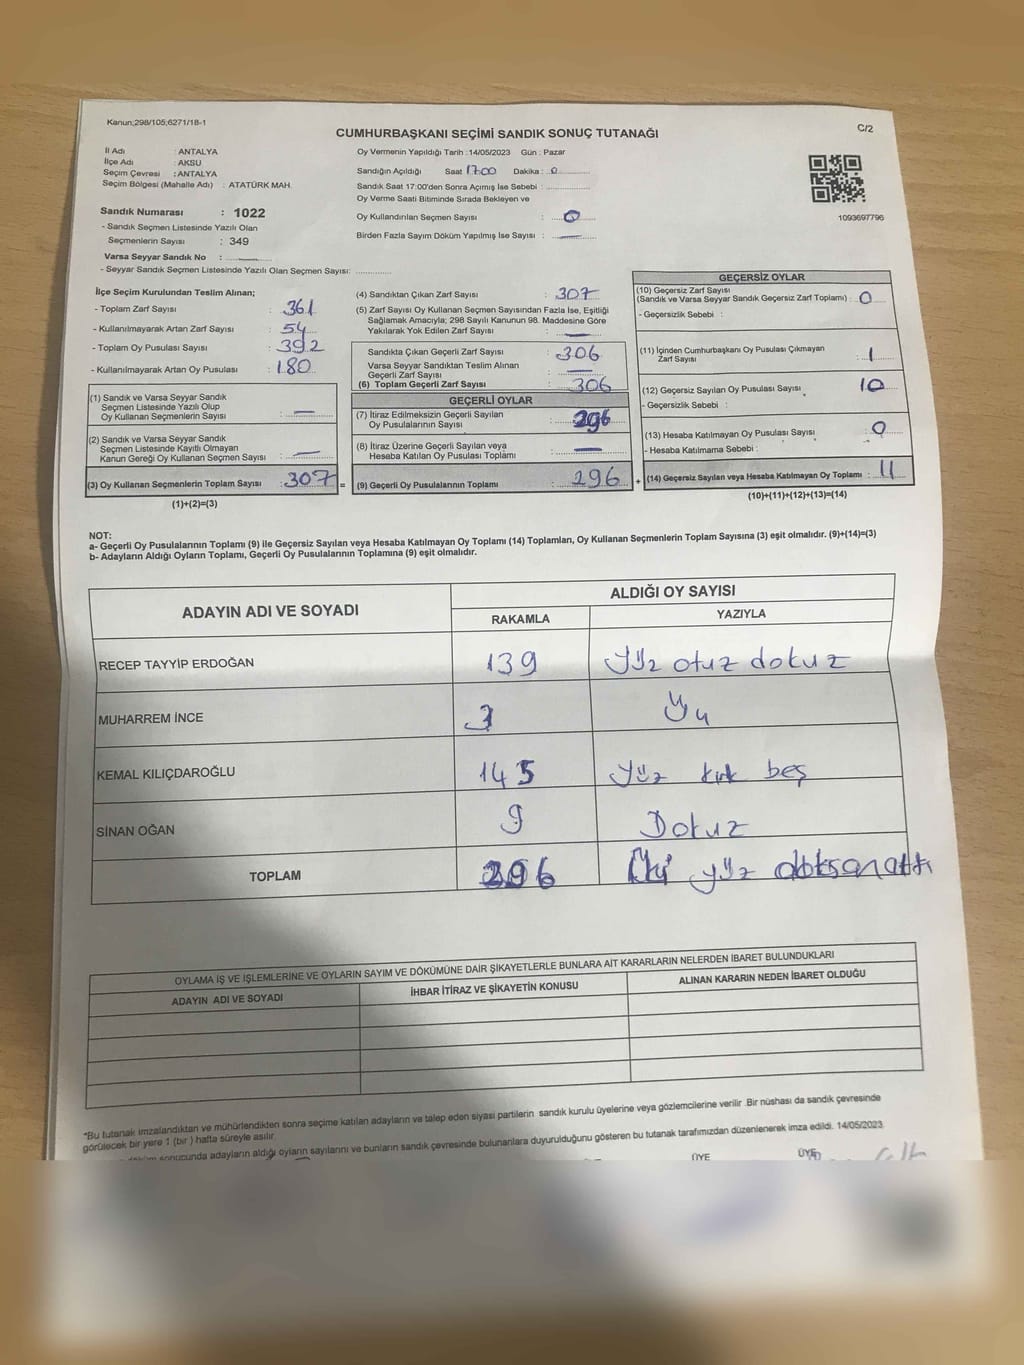 Kanun;298/105;6271/18-1
CUMHURBAŞKANI SEÇİMİ SANDIK SONUÇ TUTANAĞI
C/2
İl Adı : ANTALYA
İlçe Adı : AKSU
Seçim Çevresi : ANTALYA
Seçim Bölgesi (Mahalle Adı) : ATATÜRK MAH.
Sandık Numarası : 1022
- Sandık Seçmen Listesinde Yazılı Olan
Seçmenlerin Sayısı : 349
Varsa Seyyar Sandık No :
- Seyyar Sandık Seçmen Listesinde Yazılı Olan Seçmen Sayısı:
Oy Vermenin Yapıldığı Tarih :14/05/2023 Gün : Pazar
Sandığın Açıldığı Saat 17:00 Dakika : 0
Sandık Saat 17:00'den Sonra Açımış İse Sebebi :
Oy Verme Saati Bitiminde Sırada Bekleyen ve
Oy Kullandırılan Seçmen Sayısı : 0
Birden Fazla Sayım Döküm Yapılmış İse Sayısı : —
1093697796
İlçe Seçim Kurulundan Teslim Alınan;
- Toplam Zarf Sayısı : 361
- Kullanılmayarak Artan Zarf Sayısı : 54
- Toplam Oy Pusulası Sayısı : 392
- Kullanılmayarak Artan Oy Pusulası : 180
(1) Sandık ve Varsa Seyyar Sandık
Seçmen Listesinde Yazılı Olup
Oy Kullanan Seçmenlerin Sayısı : —
(2) Sandık ve Varsa Seyyar Sandık
Seçmen Listesinde Kayıtlı Olmayan
Kanun Gereği Oy Kullanan Seçmen Sayısı : —
(3) Oy Kullanan Seçmenlerin Toplam Sayısı : 307 =
(1)+(2)=(3)
(4) Sandıktan Çıkan Zarf Sayısı : 307
(5) Zarf Sayısı Oy Kullanan Seçmen Sayısından Fazla İse, Eşitliği
Sağlamak Amacıyla; 298 Sayılı Kanunun 98. Maddesine Göre
Yakılarak Yok Edilen Zarf Sayısı : —
Sandıkta Çıkan Geçerli Zarf Sayısı : 306
Varsa Seyyar Sandıktan Teslim Alınan
Geçerli Zarf Sayısı : —
(6) Toplam Geçerli Zarf Sayısı : 306
GEÇERLİ OYLAR
(7) İtiraz Edilmeksizin Geçerli Sayılan
Oy Pusulalarının Sayısı : 296
(8) İtiraz Üzerine Geçerli Sayılan veya
Hesaba Katılan Oy Pusulası Toplamı : —
(9) Geçerli Oy Pusulalarının Toplamı : 296 +
GEÇERSİZ OYLAR
(10) Geçersiz Zarf Sayısı
(Sandık ve Varsa Seyyar Sandık Geçersiz Zarf Toplamı) : 0
- Geçersizlik Sebebi :
(11) İçinden Cumhurbaşkanı Oy Pusulası Çıkmayan
Zarf Sayısı : 1
(12) Geçersiz Sayılan Oy Pusulası Sayısı : 10
- Geçersizlik Sebebi :
(13) Hesaba Katılmayan Oy Pusulası Sayısı : 0
- Hesaba Katılmama Sebebi :
(14) Geçersiz Sayılan veya Hesaba Katılmayan Oy Toplamı : 11
(10)+(11)+(12)+(13)=(14)
NOT:
a- Geçerli Oy Pusulalarının Toplamı (9) ile Geçersiz Sayılan veya Hesaba Katılmayan Oy Toplamı (14) Toplamları, Oy Kullanan Seçmenlerin Toplam Sayısına (3) eşit olmalıdır. (9)+(14)=(3)
b- Adayların Aldığı Oyların Toplamı, Geçerli Oy Pusulalarının Toplamına (9) eşit olmalıdır.
ADAYIN ADI VE SOYADI ALDIĞI OY SAYISI
RAKAMLA YAZIYLA
RECEP TAYYİP ERDOĞAN 139 Yüz otuz dokuz
MUHARREM İNCE 3 Üç
KEMAL KILIÇDAROĞLU 145 Yüz kırk beş
SİNAN OĞAN 9 Dokuz
TOPLAM 296 İki yüz doksanaltı
OYLAMA İŞ VE İŞLEMLERİNE VE OYLARIN SAYIM VE DÖKÜMÜNE DAİR ŞİKAYETLERLE BUNLARA AİT KARARLARIN NELERDEN İBARET BULUNDUKLARI
ADAYIN ADI VE SOYADI İHBAR İTİRAZ VE ŞİKAYETİN KONUSU ALINAN KARARIN NEDEN İBARET OLDUĞU
*Bu tutanak imzalandıktan ve mühürlendikten sonra seçime katılan adayların ve talep eden siyasi partilerin sandık kurulu üyelerine veya gözlemcilerine verilir .Bir nüshası da sandık çevresinde
görülecek bir yere 1 (bir ) hafta süreyle asılır.
sonucunda adayların aldığı oyların sayılarını ve bunların sandık çevresinde bulunanlara duyurulduğunu gösteren bu tutanak tarafımızdan düzenlenerek imza edildi. 14/05/2023
ÜYE ÜYE